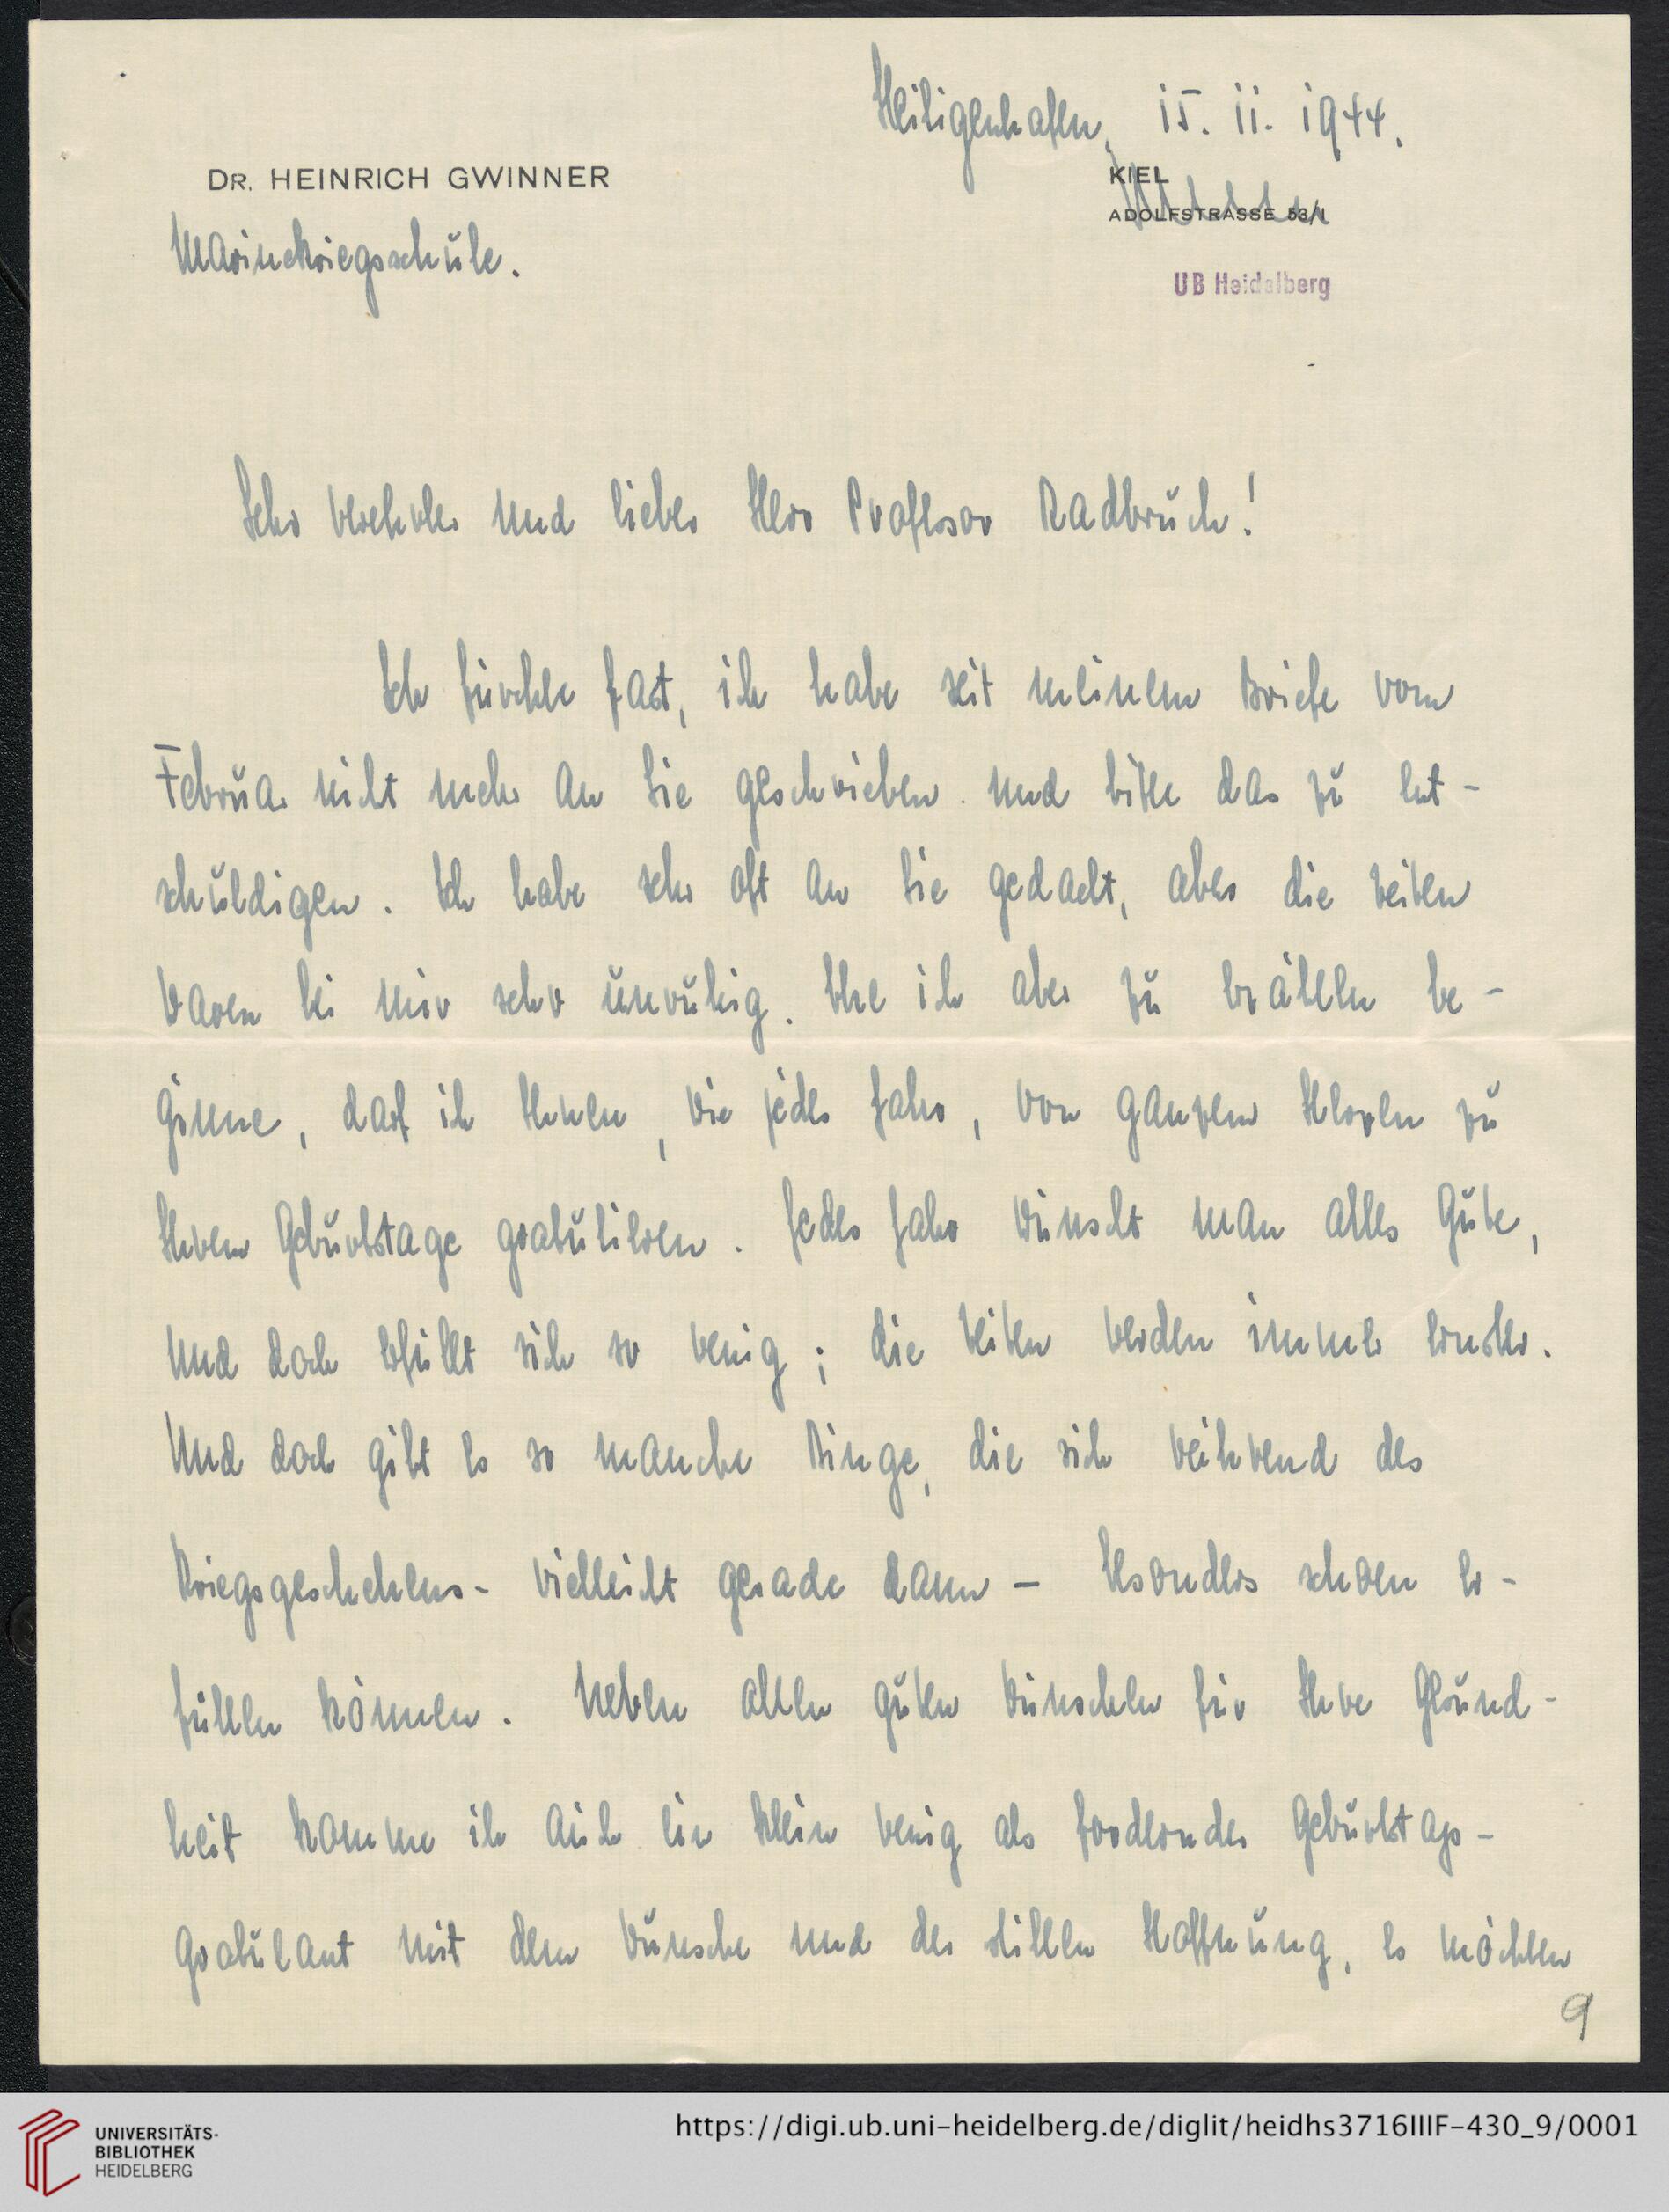 Heiligenhafen, 15. 11. 1944.
DR. HEINRICH GWINNER
KIEL
ADOLFSTRASSE 53/I
Marinekriegsschule.
UB Heidelberg
Sehr verehrter und lieber Herr Professor Radbruch!
Ich fürchte fast, ich habe seit meinem Briefe vom
Februar nicht mehr an Sie geschrieben und bitte das zu ent-
schuldigen. Ich habe sehr oft an Sie gedacht, aber die Zeiten
waren bei mir sehr unruhig. Ehe ich aber zu erzählen be-
ginne, darf ich Ihnen, wie jedes Jahr, von ganzem Herzen zu
Ihrem Geburtstage gratulieren. Jedes Jahr wünscht man alles Gute,
und doch erfüllt sich so wenig; die Zeiten werden immer ernster.
Und doch gibt es so manche Dinge, die sich während des
Kriegsgeschehens - vielleicht gerade dann - besonders schoen er-
füllen können. Neben allen guten Wünschen für Ihre Gesund-
heit komme ich auch ein klein wenig als fordernder Geburtstags-
gratulant mit dem Wunsche und der stillen Hoffnung, es möchten
9
UNIVERSITÄTS-
BIBLIOTHEK
HEIDELBERG
https://digi.ub.uni-heidelberg.de/diglit/heidhs3716IIIF-430_9/0001